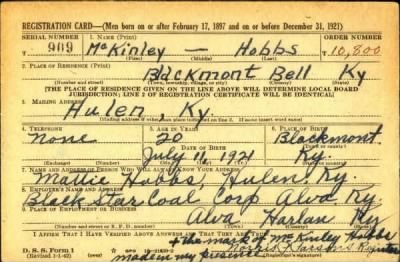 REGISTRATION CARD—(Men born on or after February 17, 1897 and on or before December 31, 1921)
SERIAL NUMBER 1. NAME (Print) ORDER NUMBER
909 McKinley — Hobbs T 10,800
(First) (Middle) (Last)
2. PLACE OF RESIDENCE (Print)
Blackmont Bell Ky
(Number and street) (Town, township, village, or city) (County) (State)
[THE PLACE OF RESIDENCE GIVEN ON THE LINE ABOVE WILL DETERMINE LOCAL BOARD
JURISDICTION; LINE 2 OF REGISTRATION CERTIFICATE WILL BE IDENTICAL]
3. MAILING ADDRESS
Hulen, Ky.
[Mailing address if other than place indicated on line 2. If same insert word same]
4. TELEPHONE 5. AGE IN YEARS 6. PLACE OF BIRTH
None 20 Blackmont
DATE OF BIRTH (Town or county)
July 11, 1921 Ky.
(Exchange) (Number) (Mo.) (Day) (Yr.) (State or country)
7. NAME AND ADDRESS OF PERSON WHO WILL ALWAYS KNOW YOUR ADDRESS
Mattie Hobbs, Hulen, Ky.
8. EMPLOYER'S NAME AND ADDRESS
Black Star Coal Corp Alva Ky.
9. PLACE OF EMPLOYMENT OR BUSINESS
Alva Harlan Ky
(Number and street or R. F. D. number) (Town) (County) (State)
I AFFIRM THAT I HAVE VERIFIED ABOVE ANSWERS AND THAT THEY ARE TRUE.
+ the mark of McKinley Hobbs
D. S. S. Form 1
(Revised 1-1-42) (over)
made in my presence